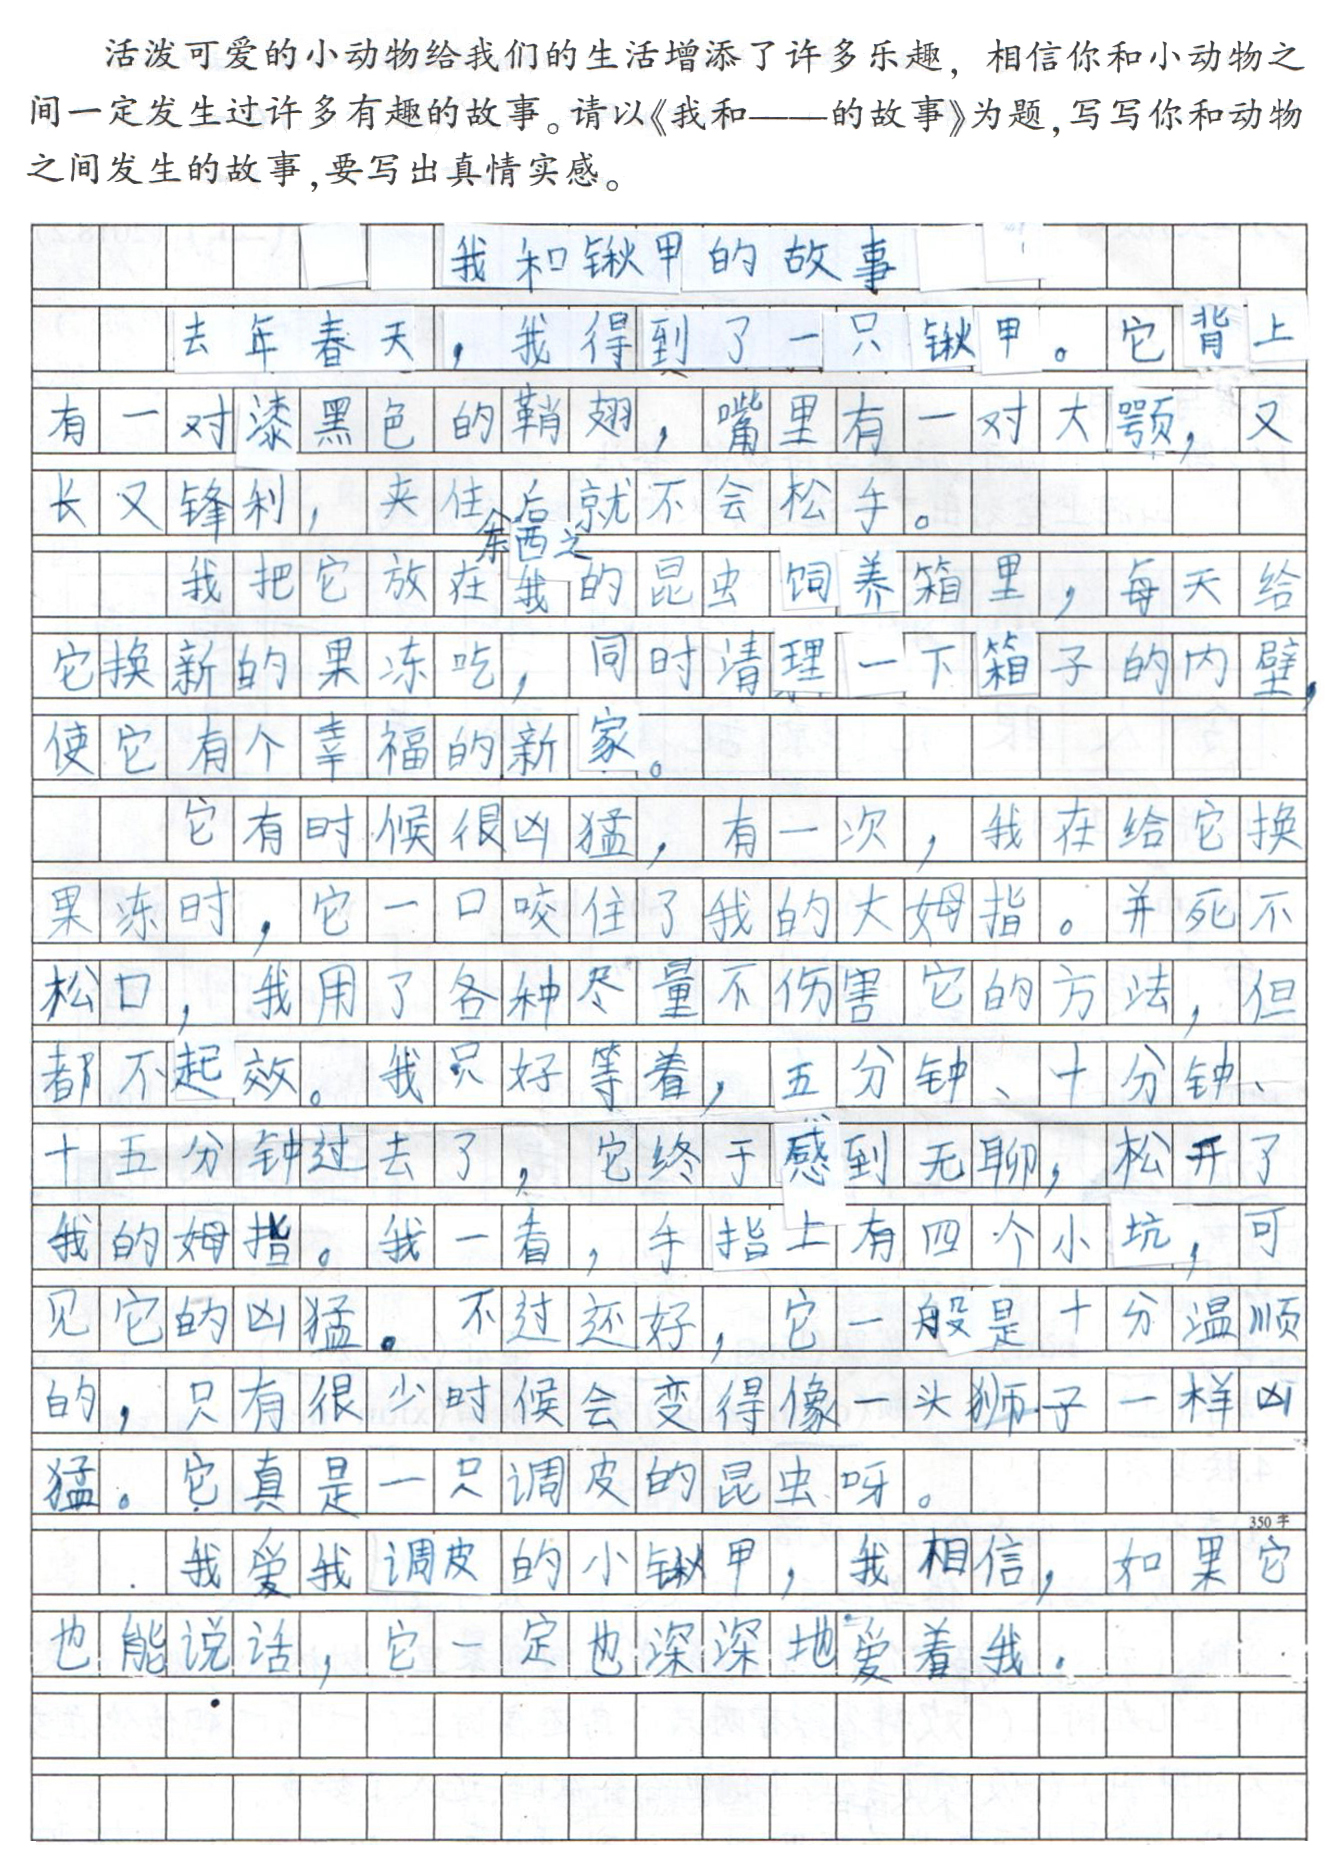 活泼可爱的小动物给我们的生活增添了许多乐趣，相信你和小动物之
间一定发生过许多有趣的故事。请以《我和——的故事》为题，写写你和动物
之间发生的故事，要写出真情实感。
我和锹甲的故事
去年春天，我得到了一只锹甲。它背上
有一对漆黑色的鞘翅，嘴里有一对大颚，又
长又锋利，夹住东西之后就不会松手。
我把它放在我的昆虫饲养箱里，每天给
它换新的果冻吃，同时清理一下箱子的内壁，
使它有个幸福的新家。
它有时候很凶猛，有一次，我在给它换
果冻时，它一口咬住了我的大姆指。并死不
松口，我用了各种尽量不伤害它的方法，但
都不起效。我只好等着，五分钟、十分钟、
十五分钟过去了，它终于感到无聊，松开了
我的姆指。我一看，手指上有四个小坑，可
见它的凶猛。不过还好，它一般是十分温顺
的，只有很少时候会变得像一头狮子一样凶
猛。它真是一只调皮的昆虫呀。
350字
我爱我调皮的小锹甲，我相信，如果它
也能说话，它一定也深深地爱着我.